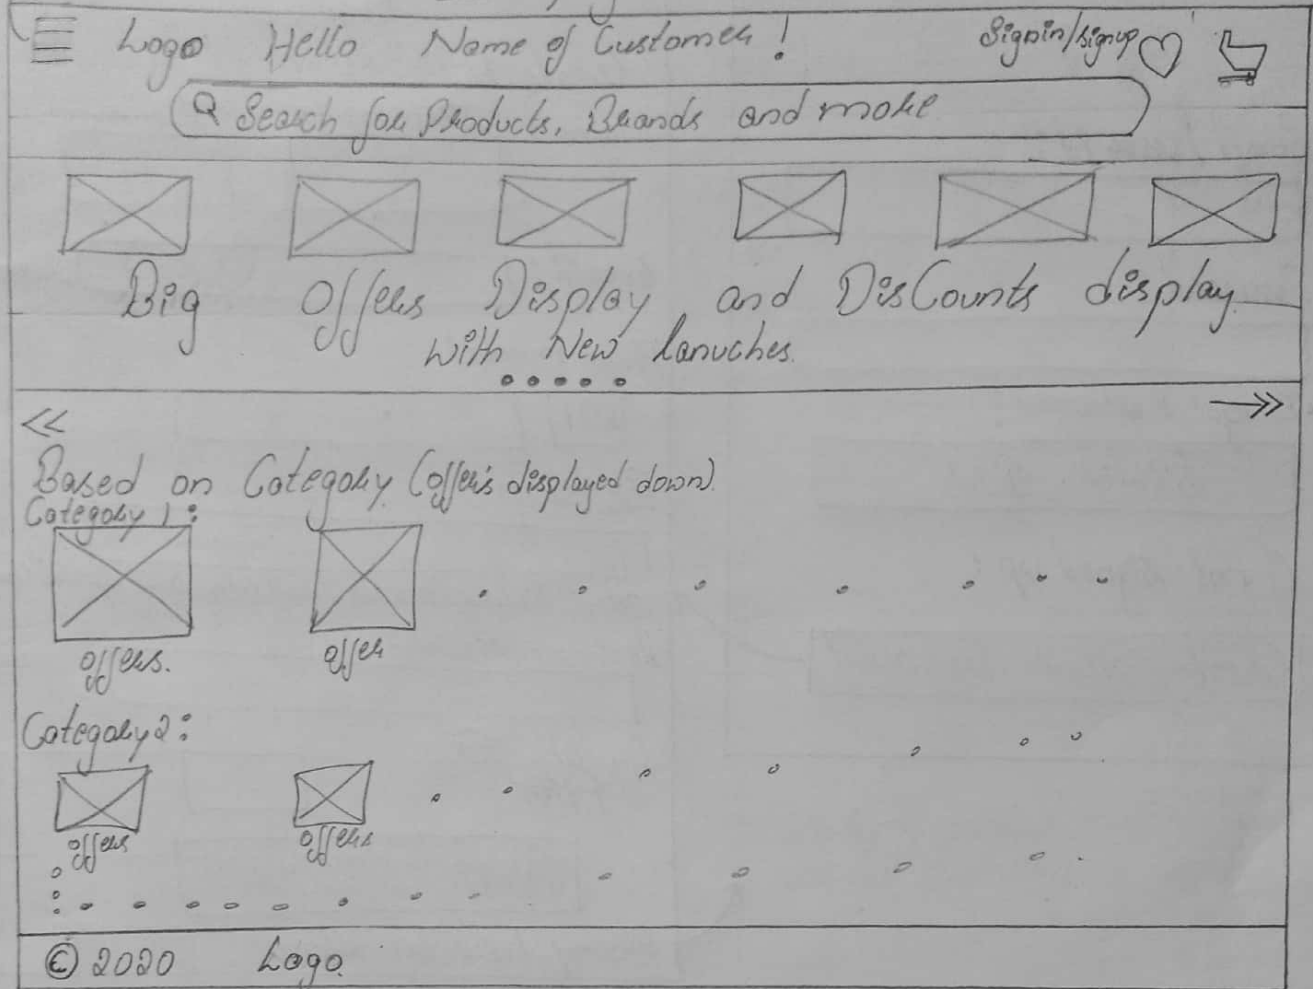 Logo Hello Name of Customer! Signin/signup
Search for Products, Brands and more
Big Offers Display and DisCounts display.
with New lanuches.
Based on Category (offers displayed down).
Category 1:
offers. offer
Category 2:
offers offers
© 2020 Logo.